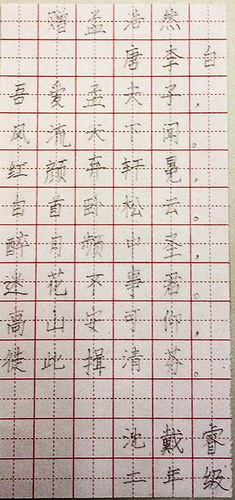 赠孟浩然
唐 李白
吾爱孟夫子，
风流天下闻。
红颜弃轩冕，
白首卧松云。
醉月频中圣，
迷花不事君。
高山安可仰，
徒此揖清芬。
沈戴睿
二年级